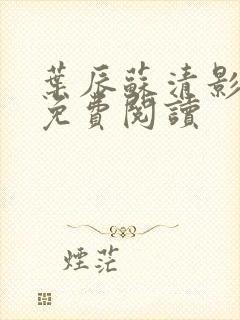 葉辰蘇清影
免費閱讀
煙茫